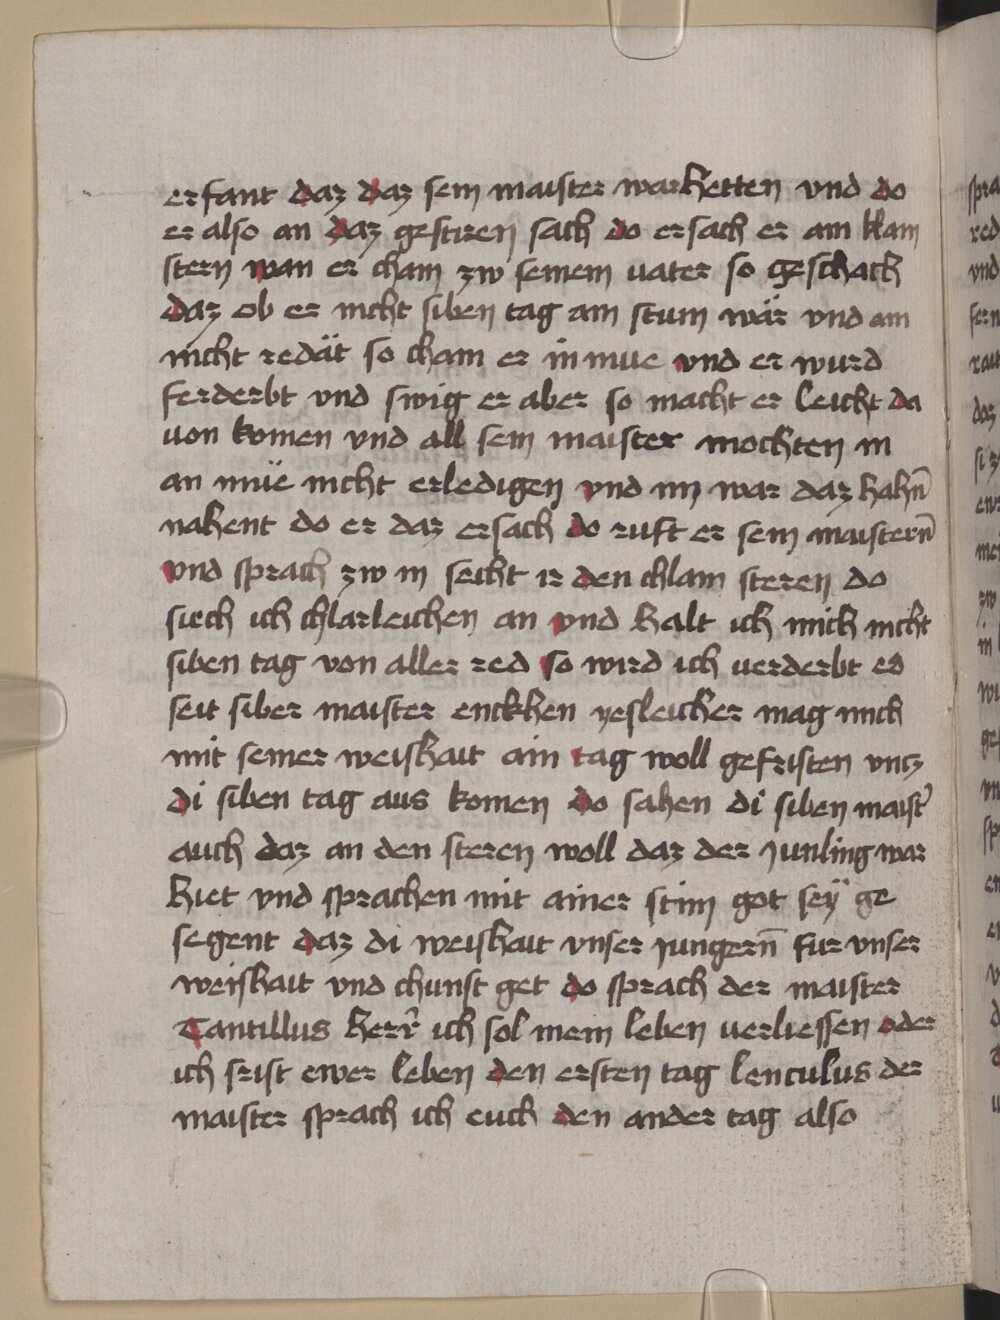 erfant daz daz sein maister warhetten vnd do
er also an daz gestiren sach do ersach er am klain
stern wan er cham zw seinem uater so geschach
daz ob er nicht siben tag ain stum wär vnd am
nicht redät so cham er in mue vnd er wurd
ferderbt vnd swig er aber so macht er leicht da
uon komen vnd all sein maister mochten in
an müe nicht erledigen vnd im war daz hahn̄
nahent do er daz ersach do ruft er sein maistern̄
vnd sprach zw in secht ir den chlain steren do
siech ich chlarleichen an vnd halt ich mich nicht
siben tag von aller red so wird ich uerderbt es
seit siber maister enckhen yesleicher mag mich
mit seiner weishait ain tag woll gefristen vncz
di siben tag aus komen do sahen di siben maist̉
auch daz an den steren woll daz der junling war
hiet vnd sprachen mit ainer stim got seÿ ge
segent daz di weishait vnser jungern̄ fur vnser
weishait vnd chunst get do sprach der maister
Tantillus herr̉ ich sol mein leben uerliessen oder
ich frist ewer leben den ersten tag lenculus der
maister sprach ich euch den ander tag also